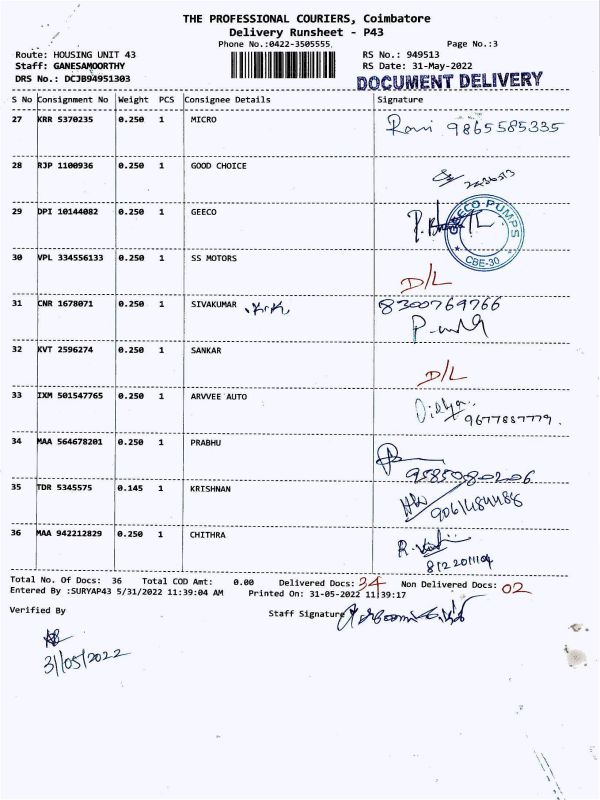 THE PROFESSIONAL COURIERS, Coimbatore
Delivery Runsheet - P43
Phone No.:0422-3505555
Page No.:3
Route: HOUSING UNIT 43
RS No.: 949513
Staff: GANESAMOORTHY
RS Date: 31-May-2022
DRS No.: DCJB94951303
DOCUMENT DELIVERY
S No Consignment No Weight PCS Consignee Details Signature
27 KRR 5370235 0.250 1 MICRO
Ravi 9865585335
28 RJP 1100936 0.250 1 GOOD CHOICE
29 DPI 10144082 0.250 1 GEECO
GEECO-PUMPS
★ CBE-30 ★
30 VPL 334556133 0.250 1 SS MOTORS
D/L
31 CNR 1678071 0.250 1 SIVAKUMAR
8300769766
32 KVT 2596274 0.250 1 SANKAR
D/L
33 IXM 501547765 0.250 1 ARVVEE AUTO
9677887779.
34 MAA 564678201 0.250 1 PRABHU
9585080206
35 TDR 5345575 0.145 1 KRISHNAN
36 MAA 942212829 0.250 1 CHITHRA
8122011104
Total No. Of Docs: 36 Total COD Amt: 0.00 Delivered Docs: 34 Non Delivered Docs: 02
Entered By :SURYAP43 5/31/2022 11:39:04 AM Printed On: 31-05-2022 11:39:17
Verified By
Staff Signature
31/05/2022